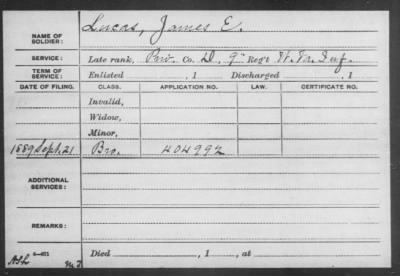 NAME OF SOLDIER: Lucas, James E.
SERVICE: Late rank, Pvt. Co. D, 9" Reg't W. Va. Inf.
TERM OF SERVICE: Enlisted , 1 Discharged , 1
DATE OF FILING. CLASS. APPLICATION NO. LAW. CERTIFICATE NO.
Invalid,
Widow,
Minor,
1889 Sept. 21 Bro. 404992
ADDITIONAL SERVICES:
REMARKS:
Died , 1 , at